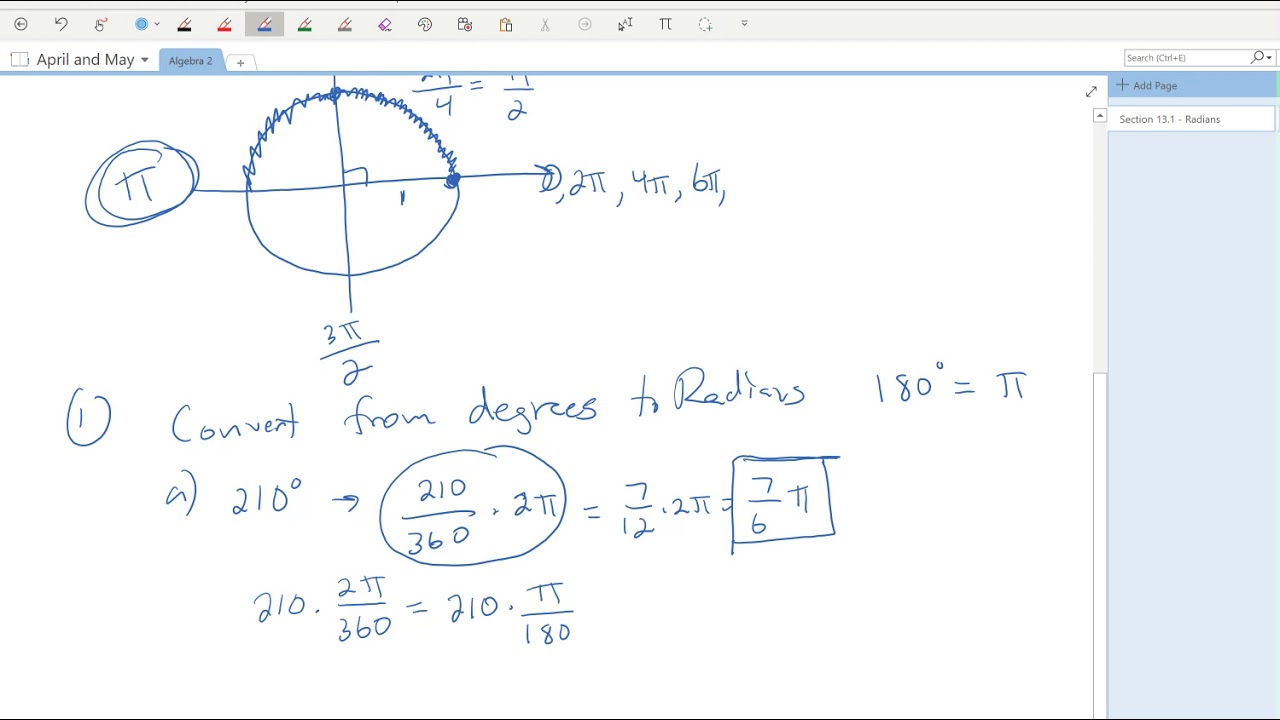 April and May
Algebra 2
+
Search (Ctrl+E)
Add Page
Section 13.1 - Radians
2π/4 = π/2
π
0, 2π, 4π, 6π,
1
3π/2
① Convert from degrees to Radians 180° = π
a) 210° → 210/360 · 2π = 7/12 · 2π = 7/6 π
210 · 2π/360 = 210 · π/180